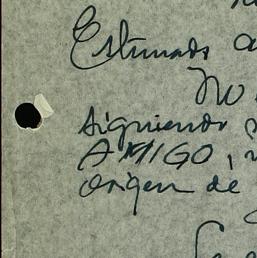 Estimado a
No
siguiendo
AMIGO,
origen de
Se